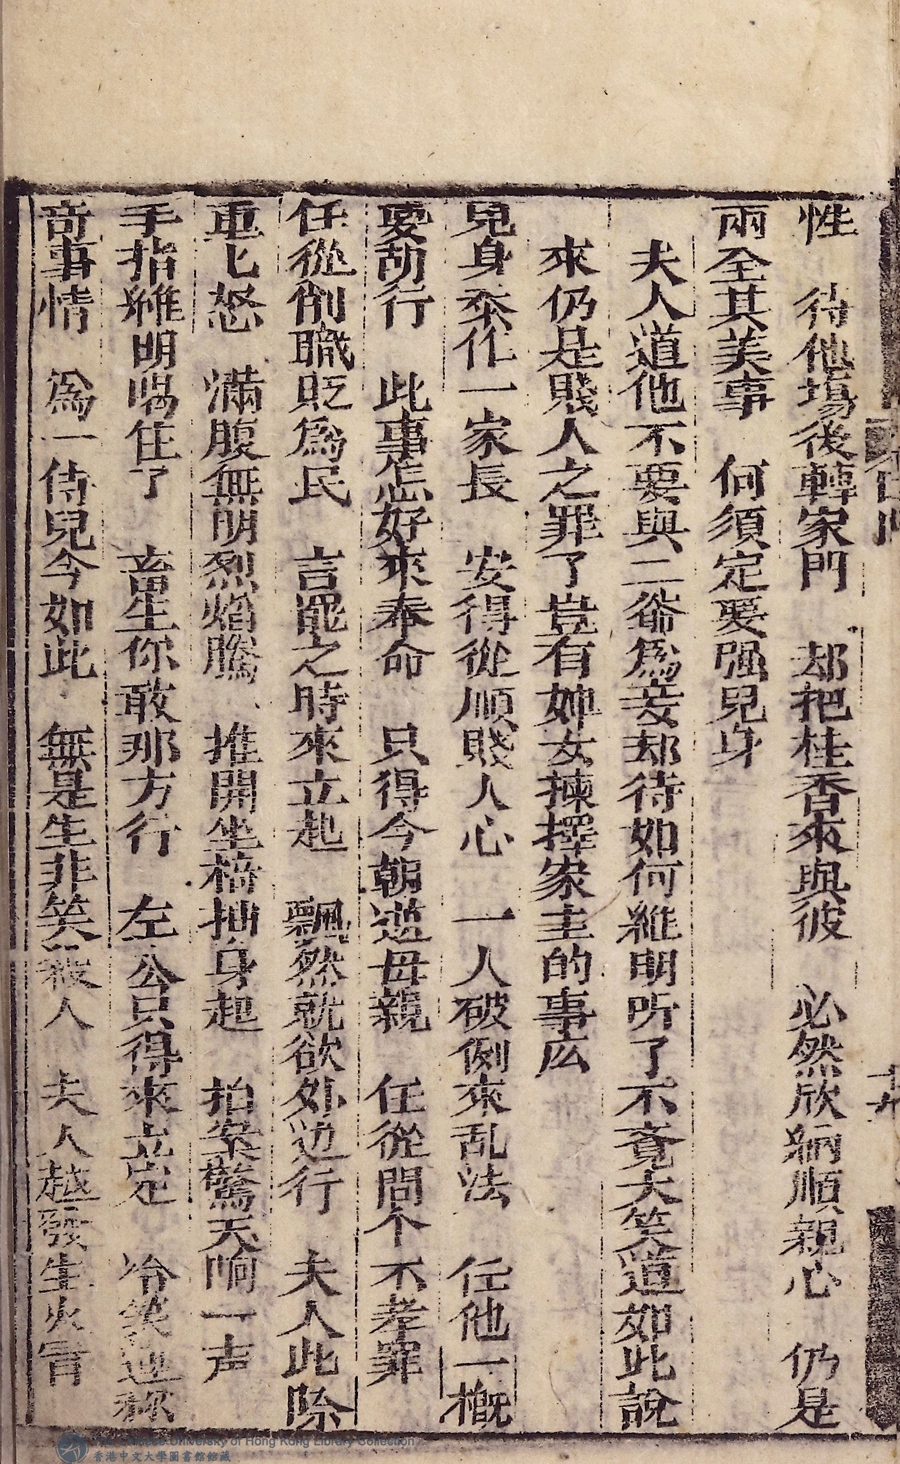 性　待他場後轉家門　却把桂香來與彼　必然欣納順親心　仍是
兩全其美事　何須定要强兒身
夫人道他不要與二爺爲妾却待如何維明听了不竟大笑道如此說
來仍是賤人之罪了豈有婢女揀擇家主的事広
兒身忝作一家長　安得從順賤人心　一人破例來乱法　任他一概
要胡行　此事怎好來奉命　只得今朝逆母親　任從問个不孝罪
任從削職貶爲民　言罷之時來立起　飄然就欲外边行　夫人此際
重匕怒　滿腹無明烈焰騰　推開坐椅抽身起　拍案驚天响一声
手指維明喝住了　畜生你敢那方行　左公只得來立定　冷笑連称
奇事情　爲一侍兒今如此　無是生非笑殺人　夫人越發生火冒
十九
香港中文大學圖書館館藏